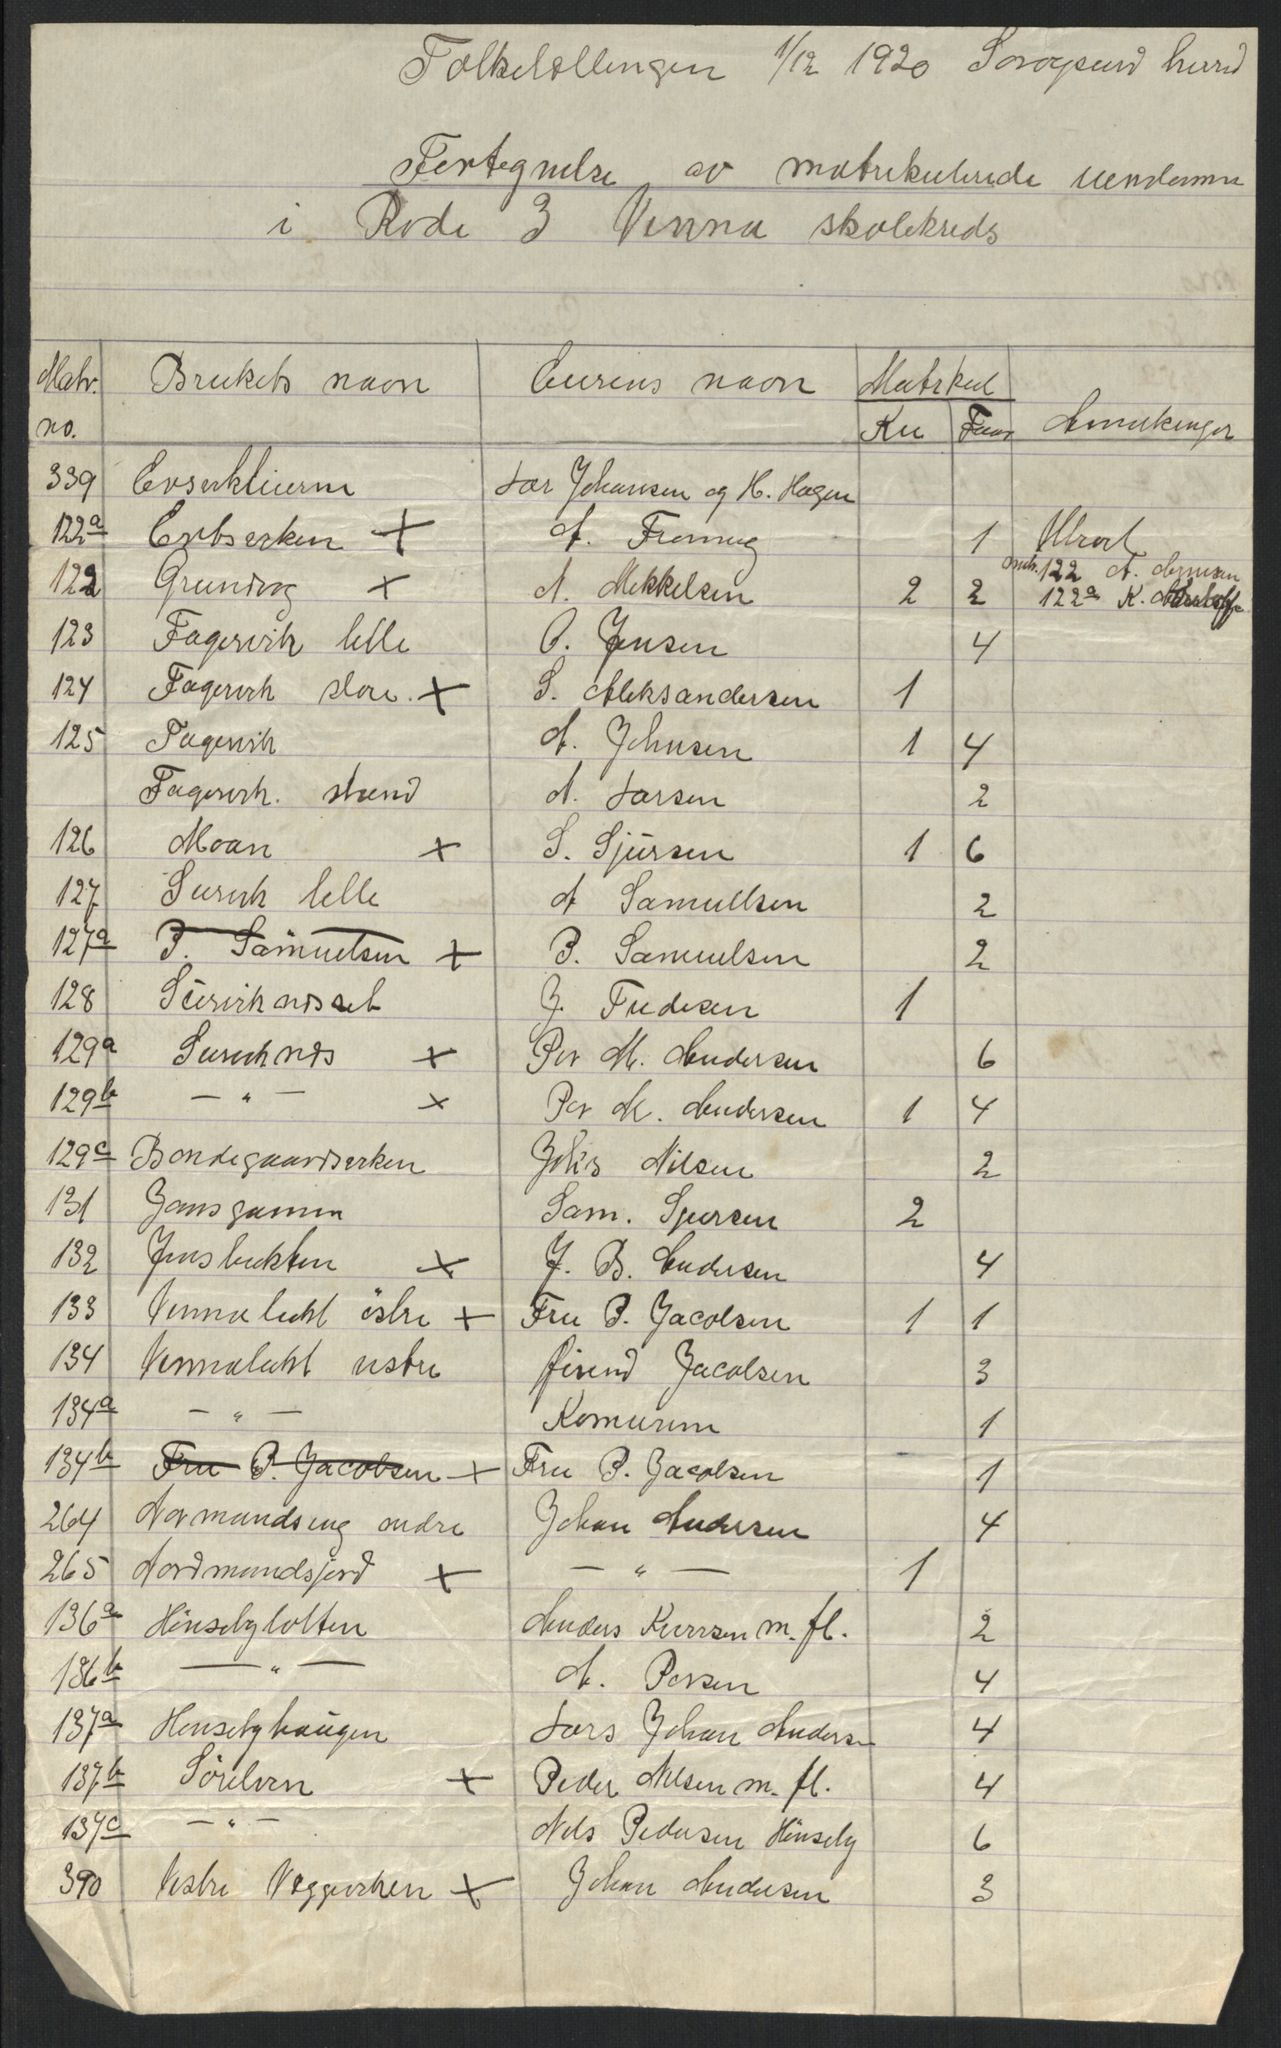 Folketellingen 1/12 1920 Sørøysund herred
Fortegnelse av matrikulerede eiendomme
i Rode 3 Venna skolekreds
Matr. no. Brukets navn Eierens navn Matrikul Anmerkinger
Ku Faar
339 Lars Johansen og H. Hagen
122a + A. 1
122 Grundvog + A. Mikkelsen 2 2 matr. 122 A.
122a K.
123 Fagervik lille O. Jensen 4
124 Fagervik store + S. Aleksandersen 1
125 Fagervik A. Johnsen 1 4
Fagervik. strand A. Larsen 2
126 Moan + S. Sjursen 1 6
127 Survik lille A Samuelsen 2
127a P. Samuelsen + P. Samuelsen 2
128 Survikneset J. 1
129a Surviknes + Per M. Andersen 6
129b — " — + Per M. Andersen 1 4
129c Bondegaardserken Johs Nilsen 2
131 Jansgamma Sam. Sjursen 2
132 Jensbukten + J. B. Andersen 4
133 Vennabukt östre + Fru P. Jacobsen 1 1
134 Vennabukt vestre Øivind Jacobsen 3
134a — " — Komunen 1
134b Fru P. Jacobsen + Fru P. Jacobsen 1
264 Normandseng indre Johan Andersen 4
265 Nordmandsjord + — " — 1
136a Hönsebylotten Anders Iversen m. fl. 2
136b — " — A. Persen 4
137a Hönsebyhaugen Lars Johan Anderse 4
137b Sörelven + Peder Nilsen m. fl. 4
137c — " — Nils Pedersen Hönseby 6
390 Vestre + Johan Andersen 3